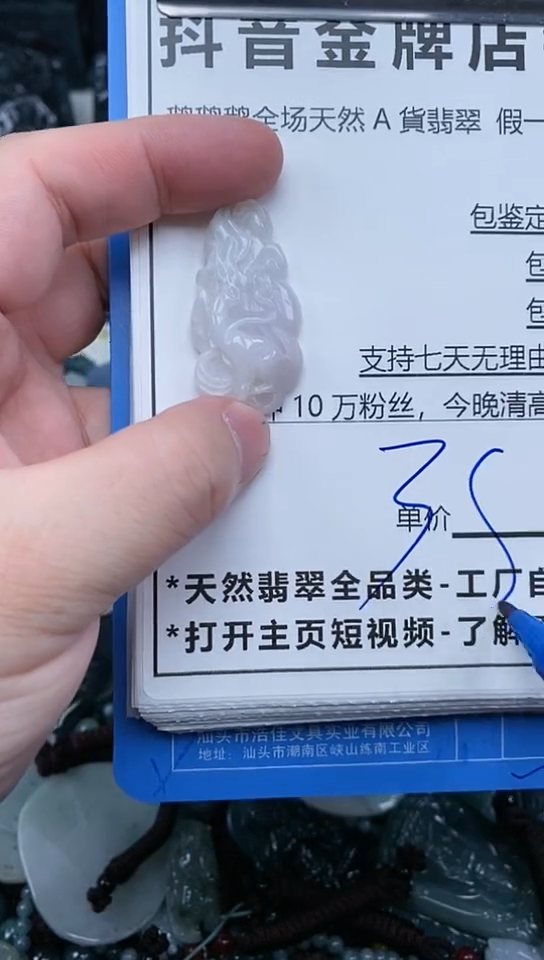 抖音金牌店
鹅鹅鹅全场天然 A 貨翡翠 假一
包鉴定
包
包
支持七天无理由
10 万粉丝，今晚清高
35
单价
*天然翡翠全品类-工厂自
*打开主页短视频-了解
汕头市洁佳文具实业有限公司
地址：汕头市潮南区峡山练南工业区